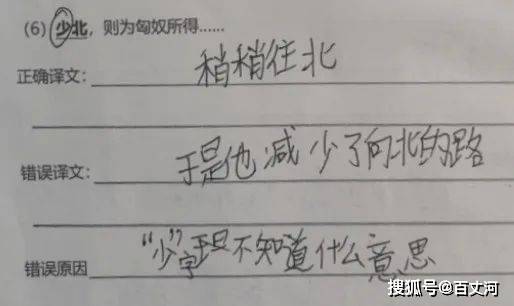 (6) 少北，则为匈奴所得……
正确译文：稍稍往北
错误译文：于是他减少了向北的路
错误原因 “少”字现不知道什么意思
搜狐号@百丈河